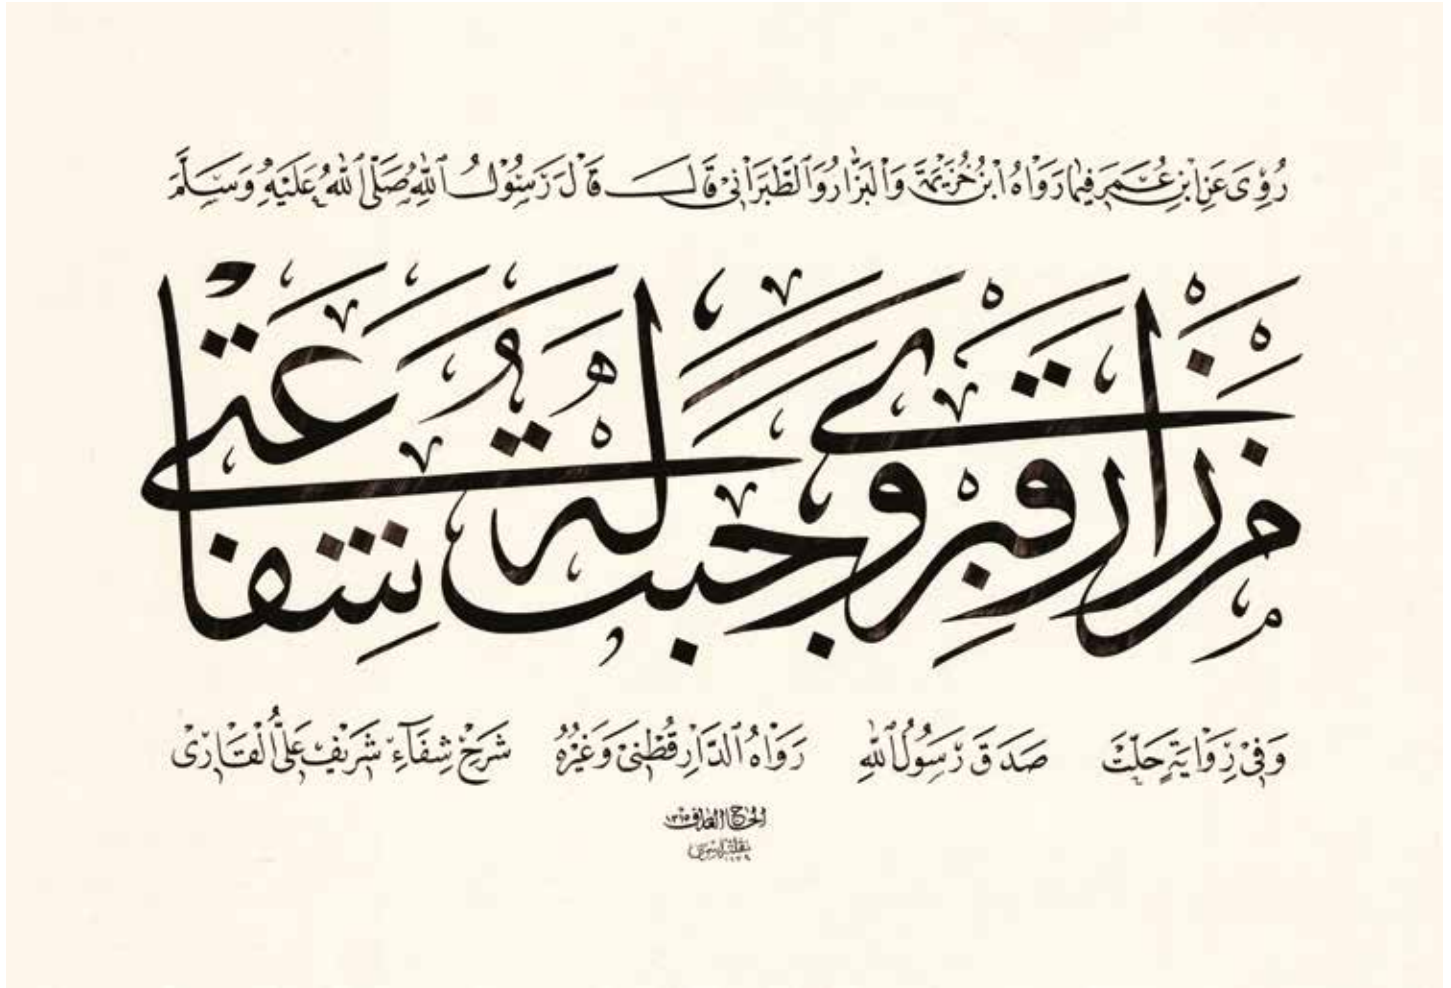 رُوِيَ عَنِ ابْنِ عُمَرَ فِيمَا رَوَاهُ ابْنُ خُزَيْمَةَ وَالْبَزَّارُ وَالطَّبَرَانِيْ قَالَ قَالَ رَسُوْلُ اللّٰهِ صَلَّى اللّٰهُ عَلَيْهِ وَسَلَّمَ
مَنْ زَارَ قَبْرِي وَجَبَتْ لَهُ شَفَاعَتِي
وَفِيْ رِوَايَةٍ حَلَّتْ صَدَقَ رَسُوْلُ اللّٰهِ رَوَاهُ الدَّارِقُطْنِيْ وَغَيْرُهُ شَرْحُ شِفَآءِ شَرِيْفْ عَلِيُّ الْقَارِيْ
الحاج العارف ١٣١٥